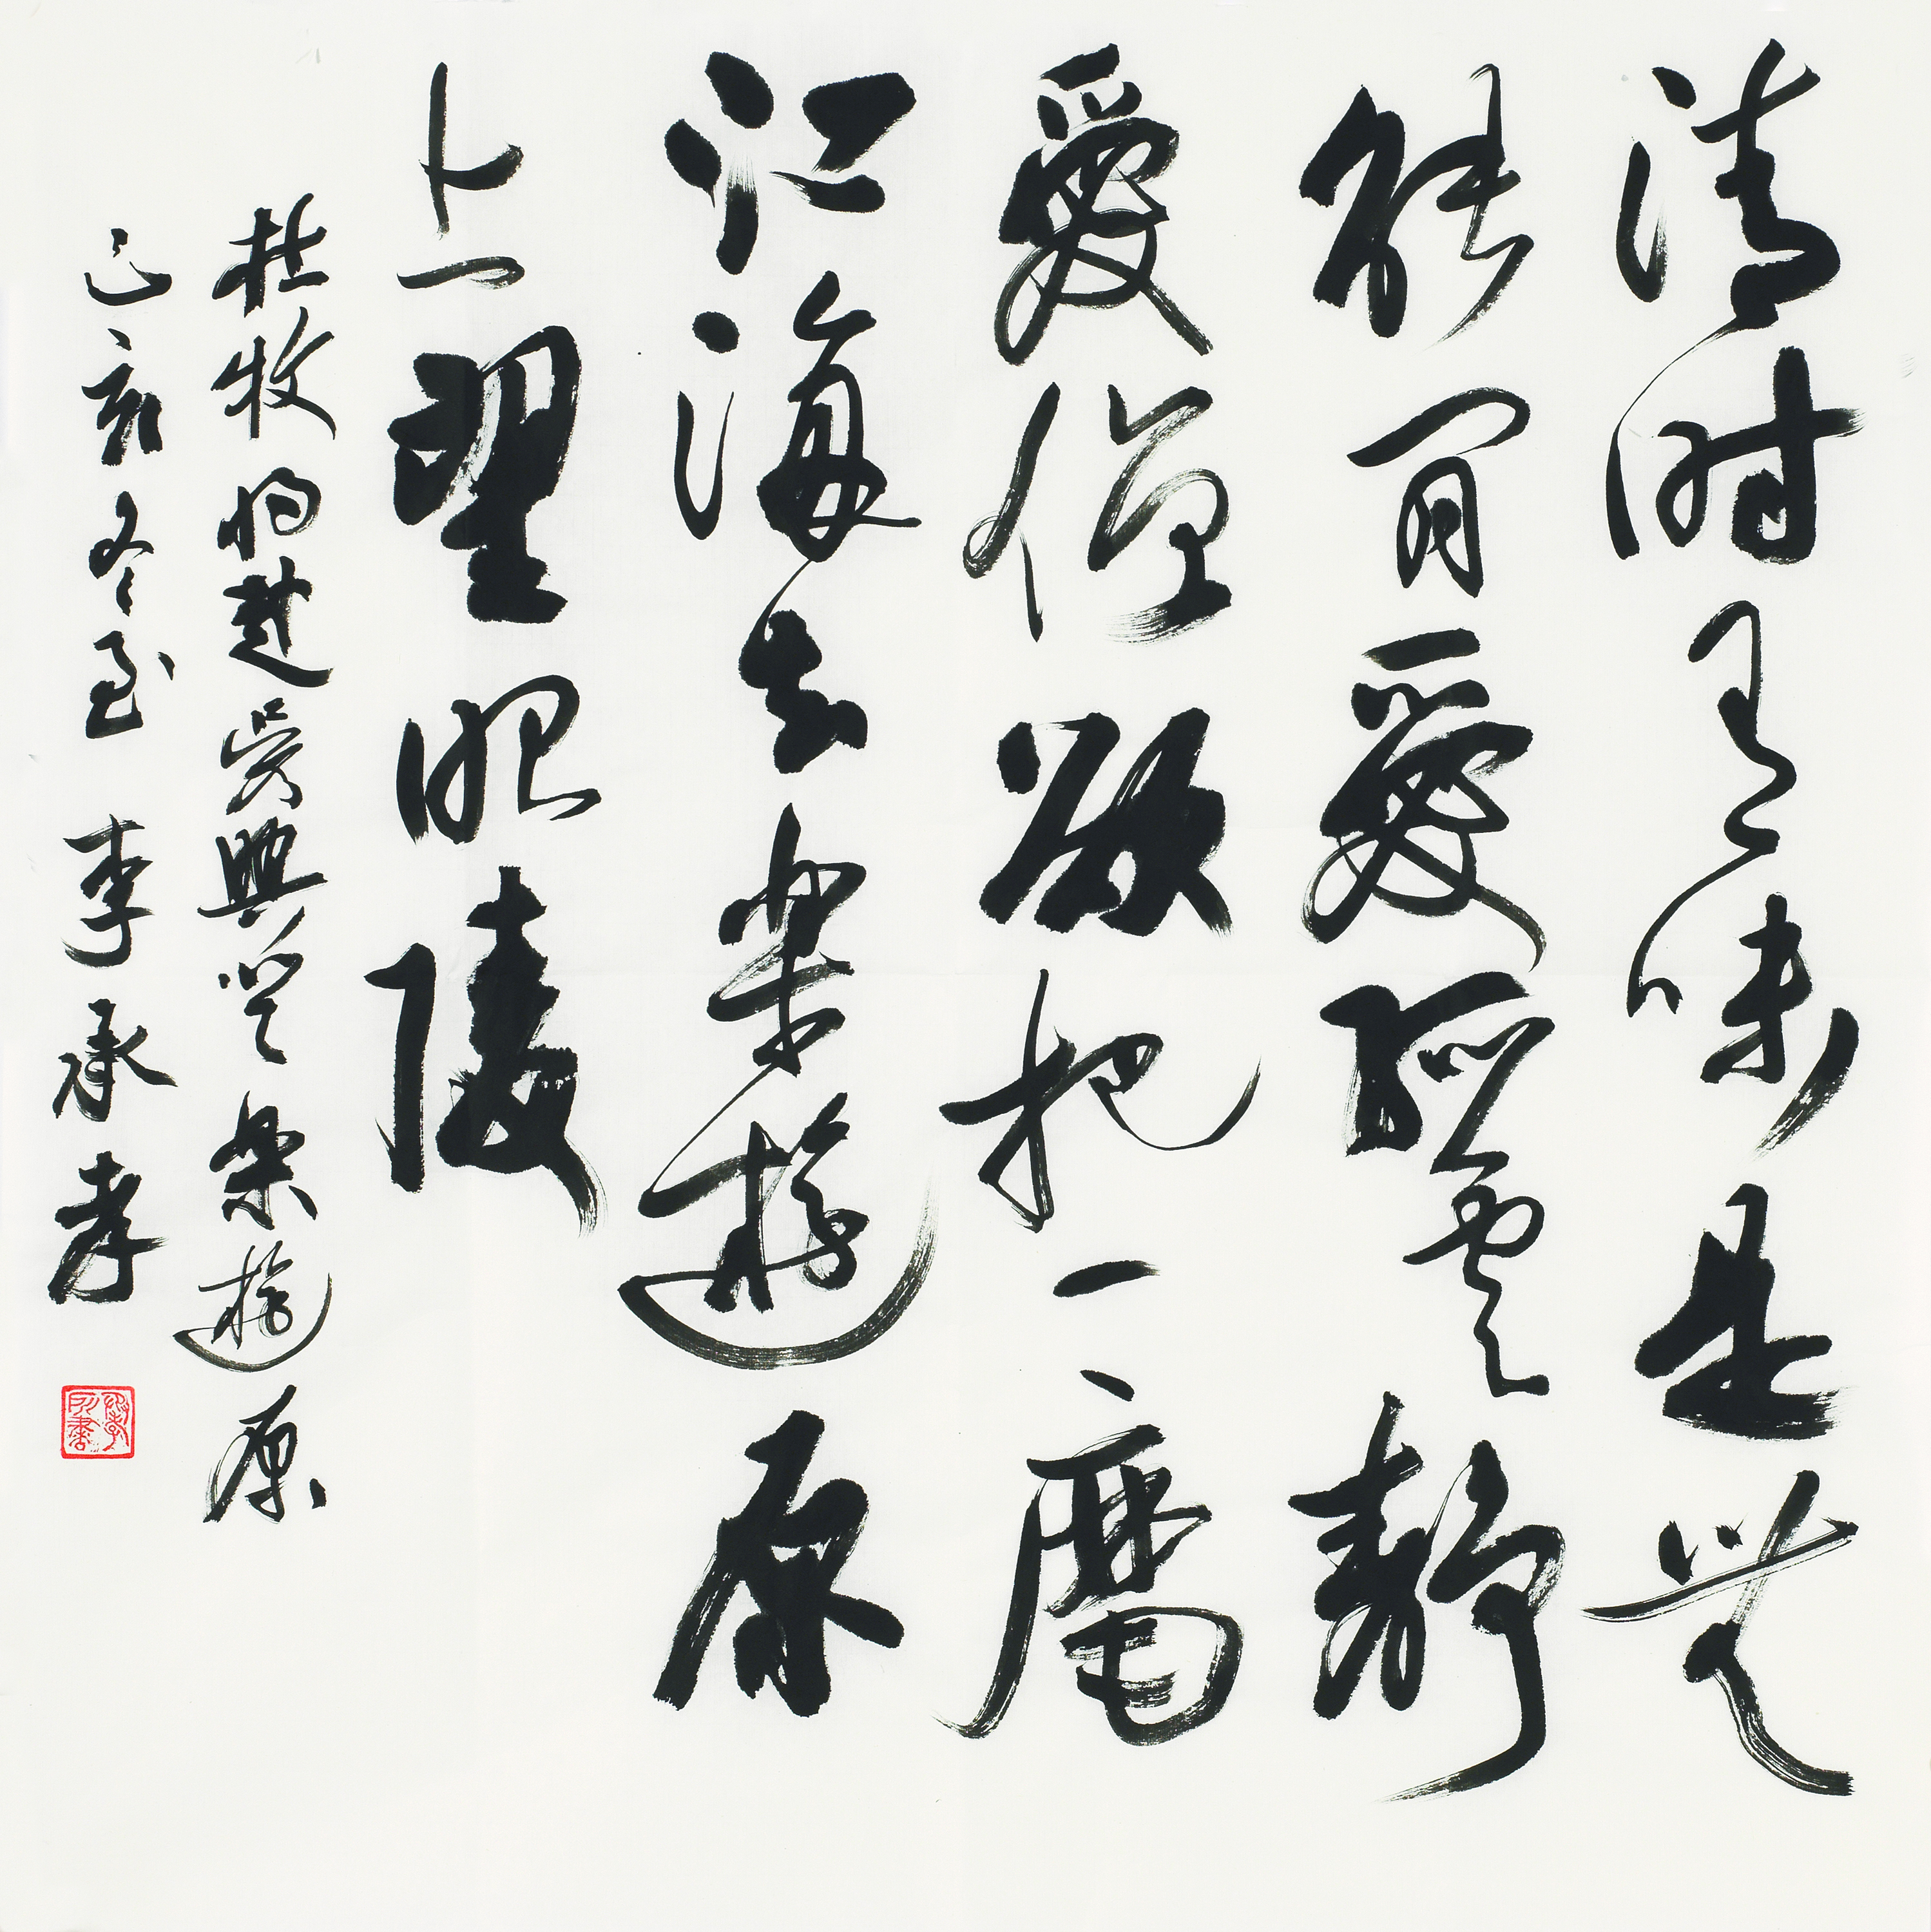 清時有味是無
能閒愛孤雲靜
愛僧欲把一麾
江海去樂遊原
上望昭陵
杜牧將赴吳興登樂遊原
己亥冬至 李承孝